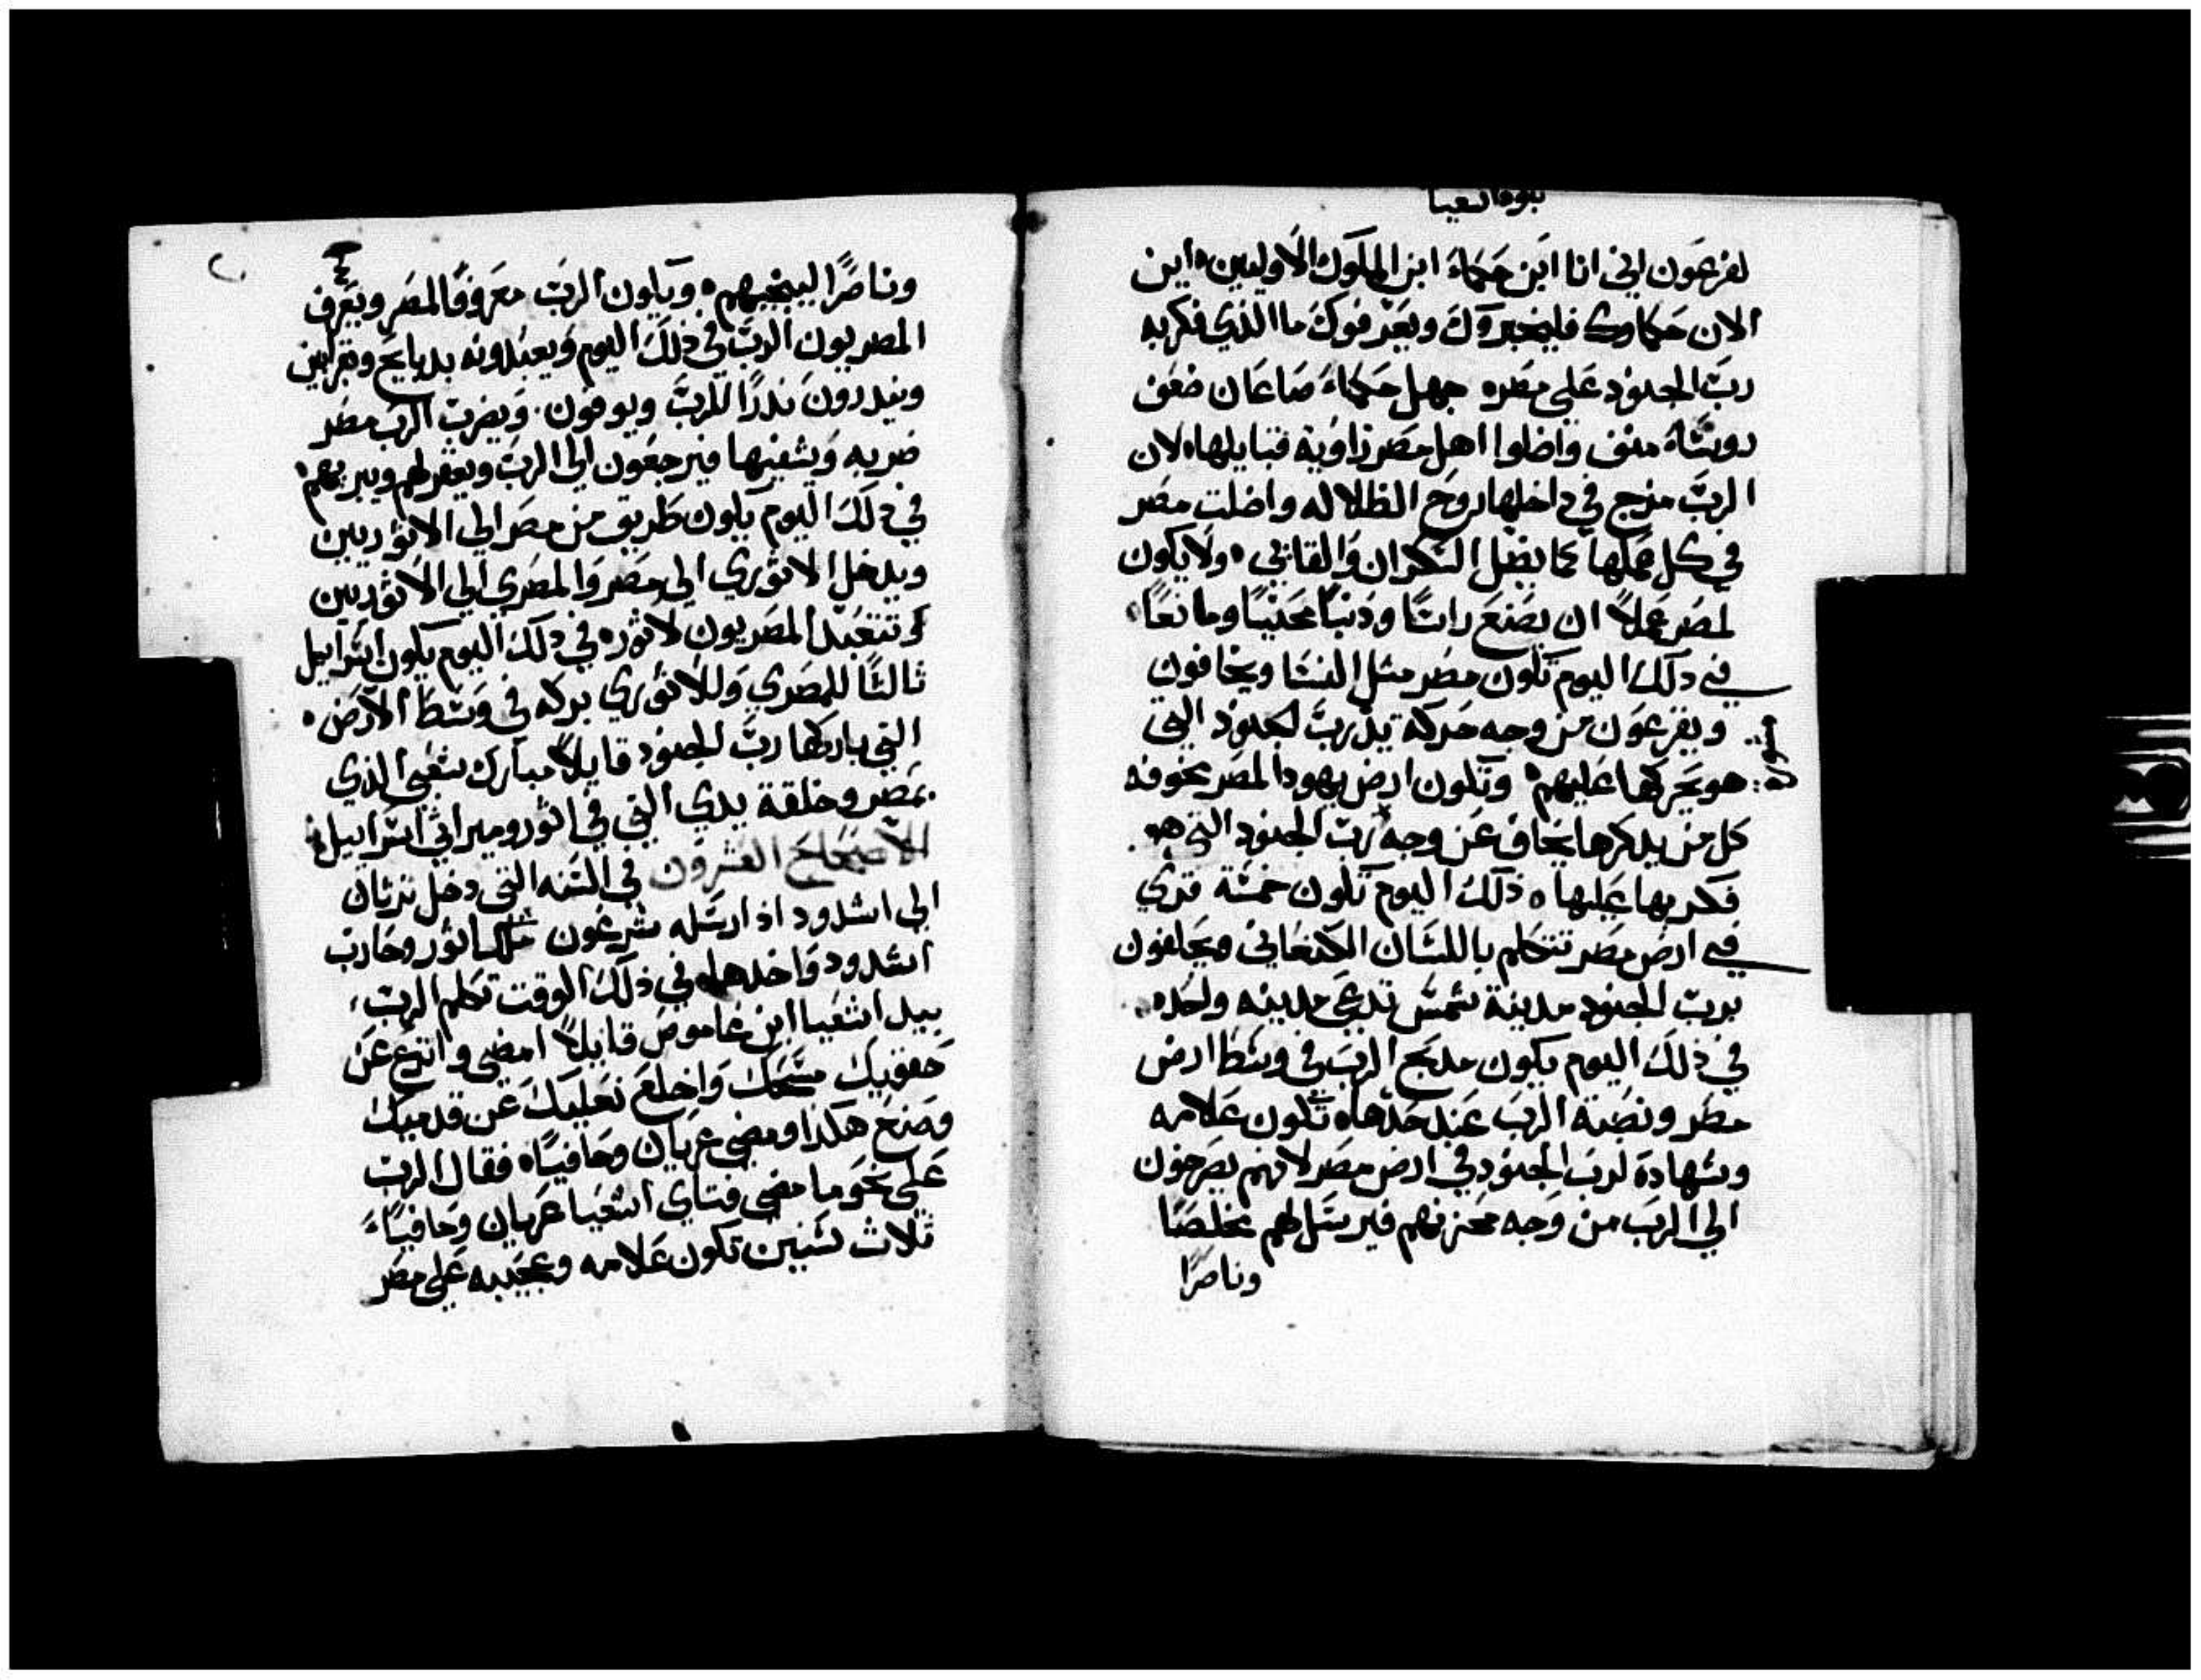 نبوة اشعيا
لفرعون اني انا ابن حكماء ابن الملوك الاوليين، اين
الان حكاوك فليخبروك ويعرفوك ما الذي فكر به
ربّ الجنود علي مصر، جهل حكماء صاعان ضعف
روسَاء منف واضلوا اهل مصر زاوية قبايلها، لان
الربّ مزج في داخلها روح الظلاله واضلت مصر
في كل عملها كما يضل السكران والقايي، ولا يكون
لمصر عملاً ان يصنع راسًا ودنبًا محنيًا ومانعًا،
في دلك اليوم تكون مصر مثل النسا ويخافون
ويفزعون من وجه حركة يد ربّ الجنود التي
هو يحركها عليهم، وتكون ارض يهودا لمصر مخوفه
كل من يدكرها يخاف عن وجه ربّ الجنود التي هو
فكر بها عليها، ذلك اليوم تكون خمسة قري
في ارض مصر تتكلم باللسان الكنعاني ويحلفون
بربّ الجنود مدينة شمس تدعي مدينه واحده،
في ذلك اليوم يكون مدبح الرب في وسط ارض
مصر ونصبة الرب عند حدها، تكون علامه
وشهادة لرب الجنود في ارض مصر لانهم يصرخون
الي الرب من وجه محزنهم فيرسل لهم مخلصًا
وناصرًا
وناصرًا لينجيهم، ويكون الربّ معروفًا لمصر ويعرف
المصريون الربّ في ذلك اليوم ويعبدونه بدبايح وبقرابين
ويندرون ندرًا للربّ ويوفون، ويضرب الرب مصر
ضربه ويشفيها فيرجعون الي الرب ويغفر لهم ويبريهم،
في دلك اليوم يكون طريق من مصر الي الاثوريين
ويدخل الاثوري الي مصر والمصري الي الاثوريين
وتتعبد المصريون لاثور، في دلك اليوم يكون اسراييل
ثالثًا للمصري وللاثوري بركه في وسط الارض،
التي باركها ربّ الجنود قايلاً مبارك شعبي الذي
بمصر وخلقة يدي التي في اثور وميراثي اسراييل،
الاصحاح العشرون في السنه التي دخل ترتان
الي اشدود اذ ارسله سرغون ملك اثور وحارب
اشدود واخدها، في ذلك الوقت تكلم الربّ،
بيد اشعيا ابن عاموص قايلاً امضي وانزع عن
حقويك مسحك واخلع نعليك عن قدميك
وصنع هكدا ومضي عريان وحافيًا، فقال الرب
علي نحو ما مضي فتاي اشعيا عريان وحافيًا،
ثلاث سنين تكون علامه وعجيبه علي مصر